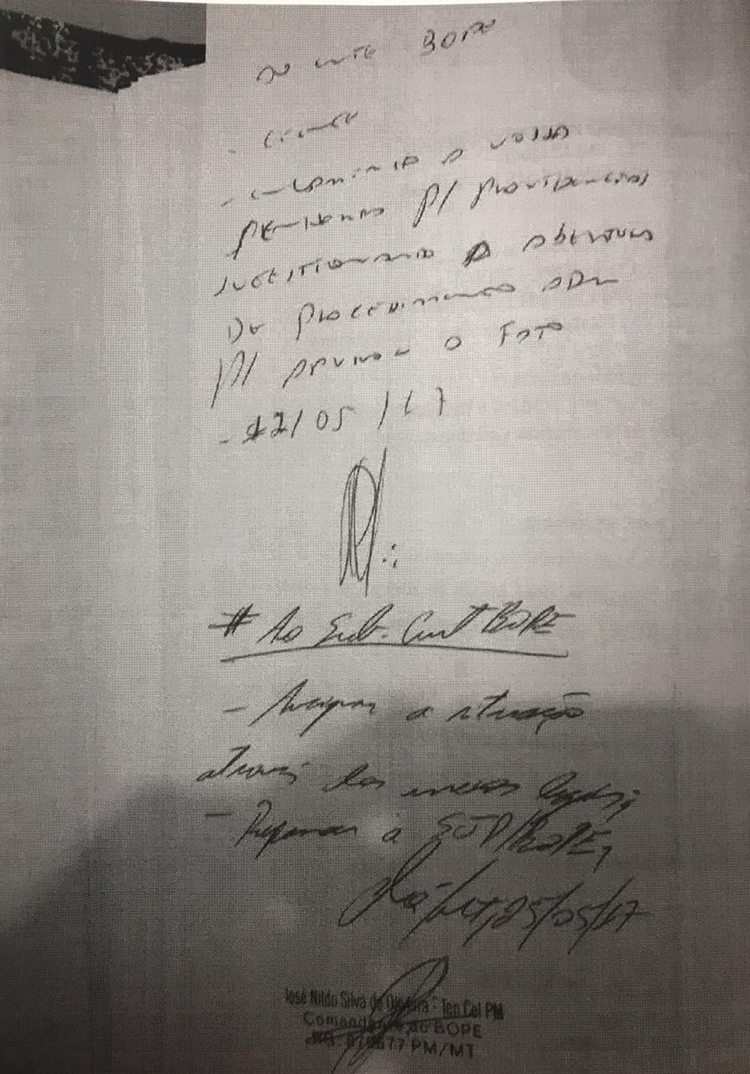 AO CMTE BOPE
- CIENTE
- ENCAMINHO A VOSSA
P/ PROVIDENCIAS
QUESTIONANDO A ABERTURA
DE PROCEDIMENTO ADM
P/ APURAR O FATO
- 22/05/17
# Ao Sub. Cmt BOPE
- Averiguar a situação
através dos meios legais;
- a SJD/BOPE,
Cbá/MT, 25/05/17
José Nildo Silva de Oliveira - Ten Cel PM
Comandante do BOPE
PM/MT